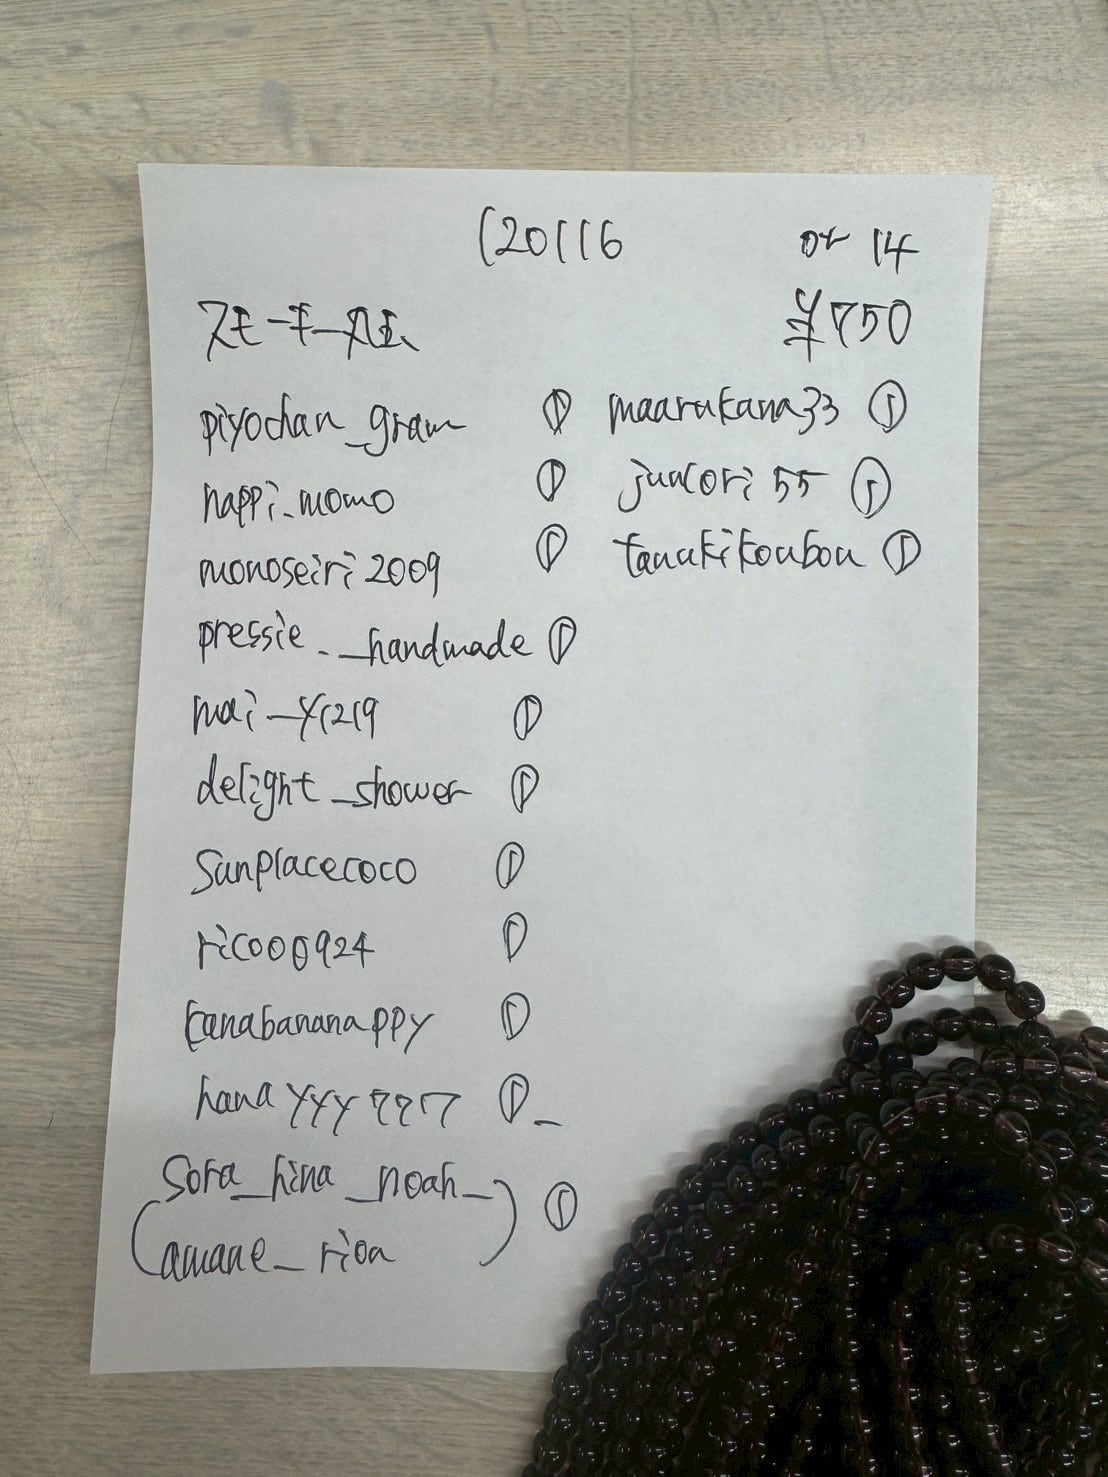 120116
or 14
スモーキー丸玉
¥750
piyochan_gram ①
happi_momo ①
monoseiri2009 ①
pressie._handmade ①
mai_y1219 ①
delight_shower ①
sunplacecoco ①
rico00924 ①
kanabananappy ①
hanayyy777 ①
(sora_hina_noah_
amane_rion) ①
maarukana33 ①
juncori55 ①
tanukikoubou ①